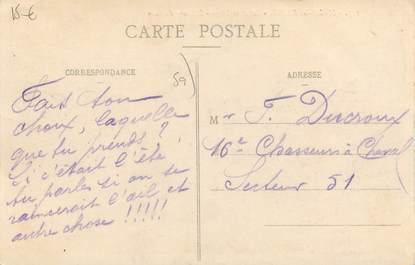 15 €
CARTE POSTALE
CORRESPONDANCE
59
ADRESSE
Fais ton
choux, laquelle
que tu prends ?
Si c'était l'été
tu parles si on se
rincerait l'œil et
autre chose !!!!!
Mr F. Ducroux
16e Chasseurs à Cheval
Secteur 51